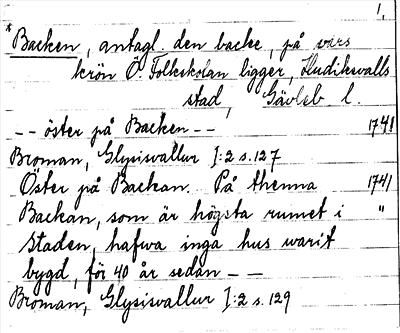 1.
*Backen, antagl. den backe, på värs
krön Ö. Folkskolan ligger, Hudiksvalls
stad, Gävleb l.
-- öster på Backen -- 1741
Broman, Glysisvallur I:2 s. 127
Öster på Backan. På thenna 1741
Backan, som är högsta rumet i "
staden, hafwa inga hus warit
bygd, för 40 år sedan --
Broman, Glysisvallur I:2 s. 129